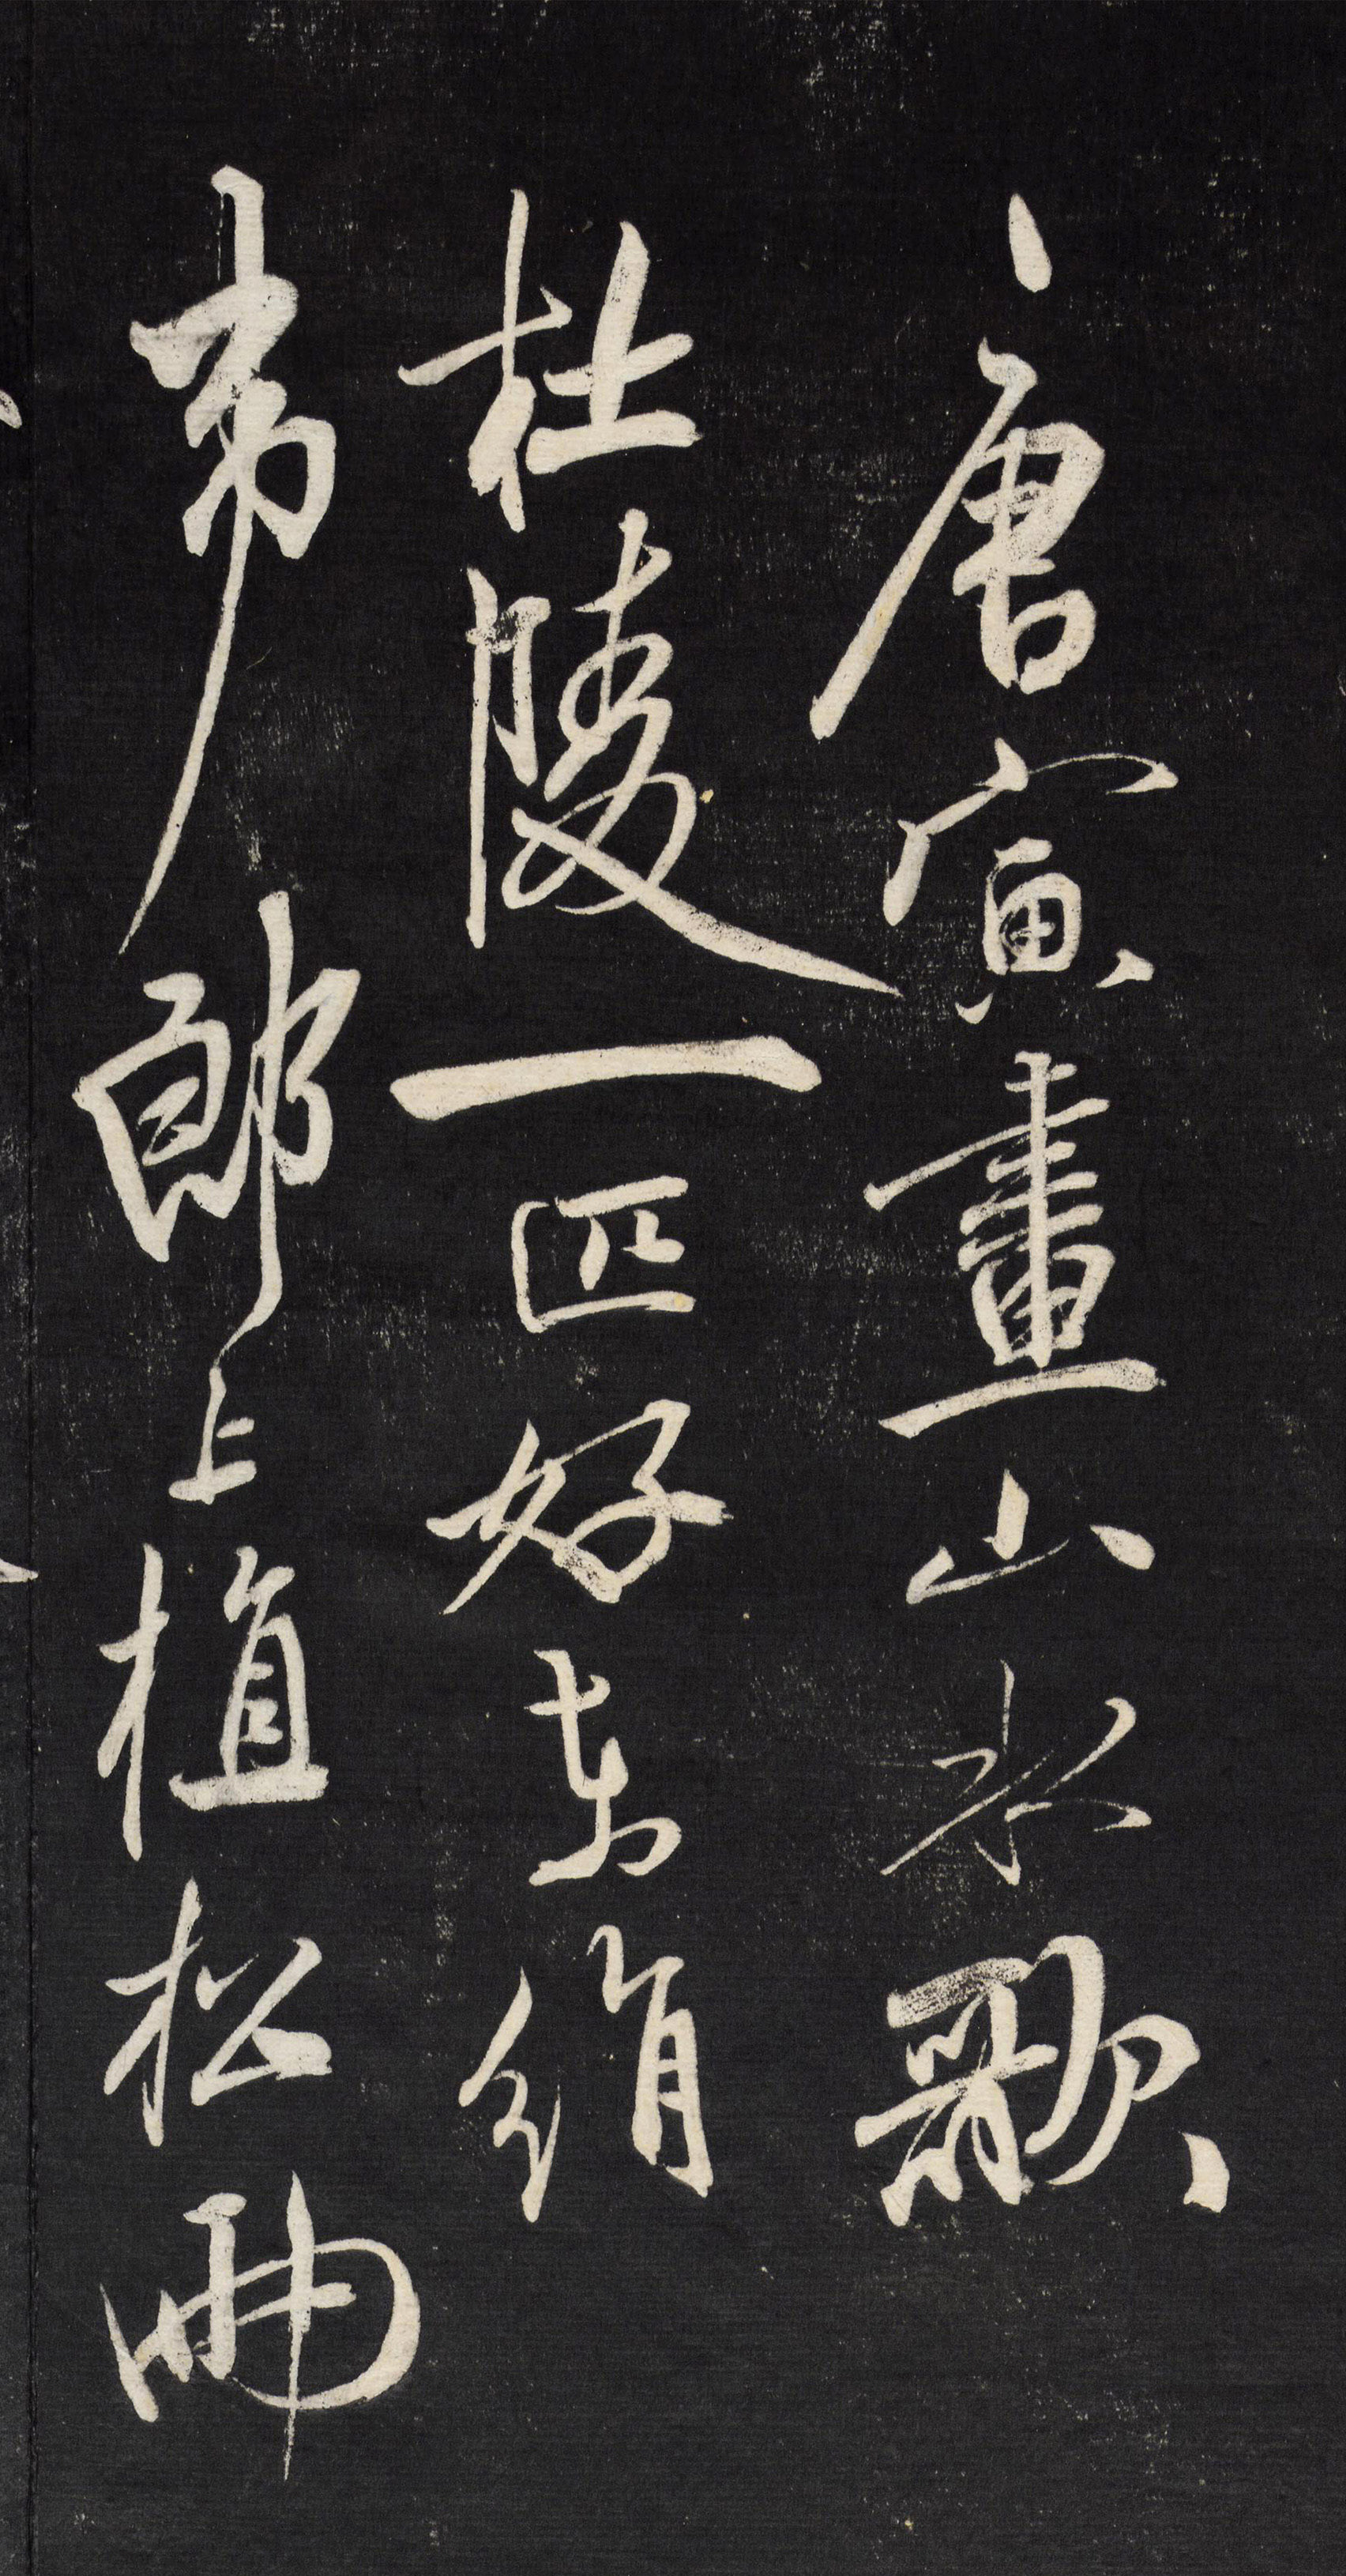 唐寅畫山水歌
杜陵一匹好東絹
韋郎上植松兩